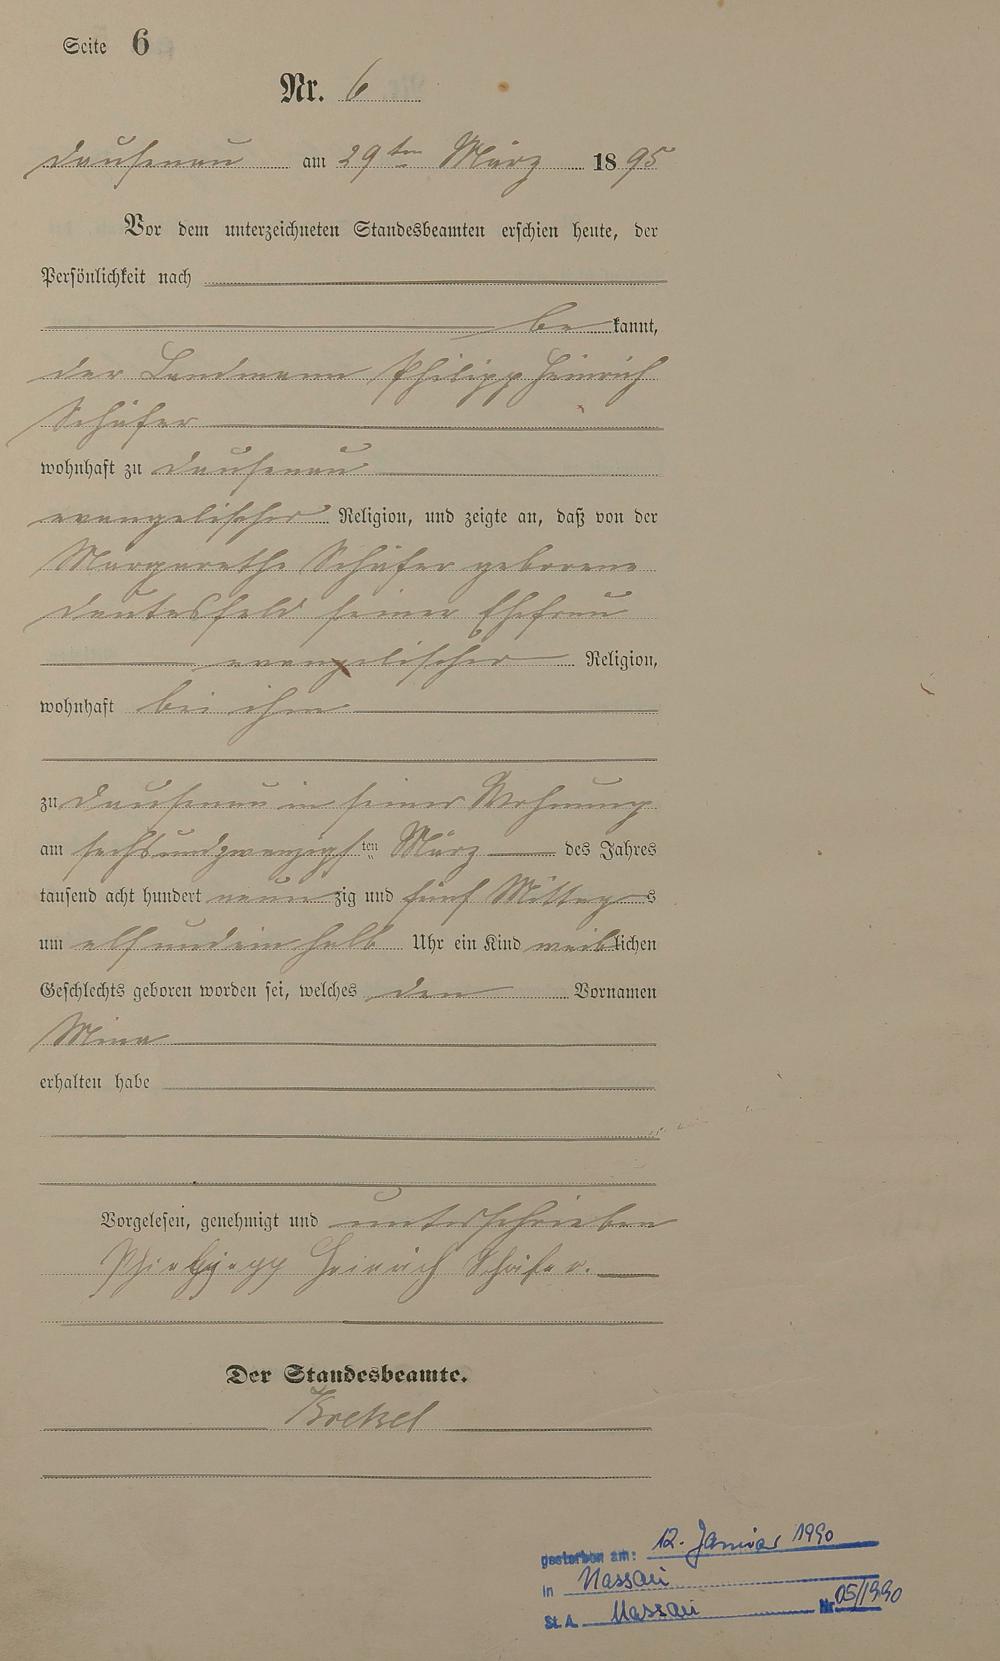 Seite 6
Nr. 6
Dausenau am 29ten März 1895
Vor dem unterzeichneten Standesbeamten erschien heute, der
Persönlichkeit nach
bekannt,
der Landmann Philipp Heinrich
Schäfer
wohnhaft zu Dausenau
evangelischer Religion, und zeigte an, daß von der
Margarethe Schäfer geborene
Dautesfeld seiner Ehefrau
evangelischer Religion,
wohnhaft bei ihm
zu Dausenau in seiner Wohnung
am sechsundzwanzigsten März des Jahres
tausend acht hundert neunzig und fünf Mittags
um elf und ein halb Uhr ein Kind weiblichen
Geschlechts geboren worden sei, welches den Vornamen
Mina
erhalten habe
Vorgelesen, genehmigt und unterschrieben
Heinrich Schäfer.
Der Standesbeamte.
gestorben am: 12. Januar 1990
in Nassau
St. A. Nassau Nr. 05/1990